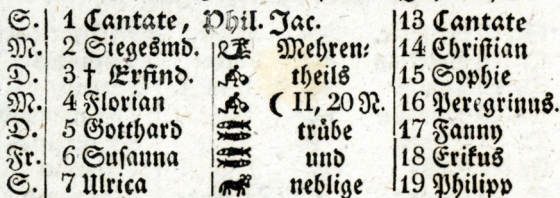 S. 1 Cantate, Phil. Jac. 13 Cantate
M. 2 Siegesmd. Mehren: 14 Christian
D. 3 † Erfind. theils 15 Sophie
M. 4 Florian ☾ II, 20 N. 16 Peregrinus.
D. 5 Gotthard trübe 17 Fanny
Fr. 6 Susanna und 18 Erikus
S. 7 Ulrica neblige 19 Philipp